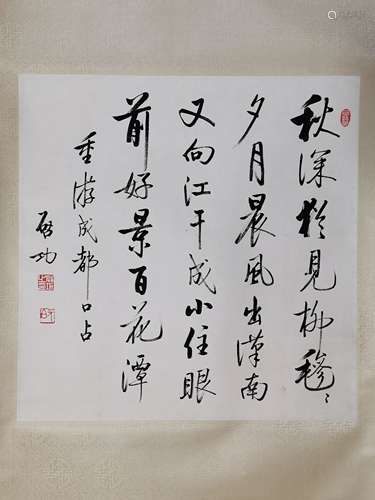 秋深犹见柳毿〻
夕月晨风出漢南
又向江干成小住眼
前好景百花潭
重游成都口占
启功